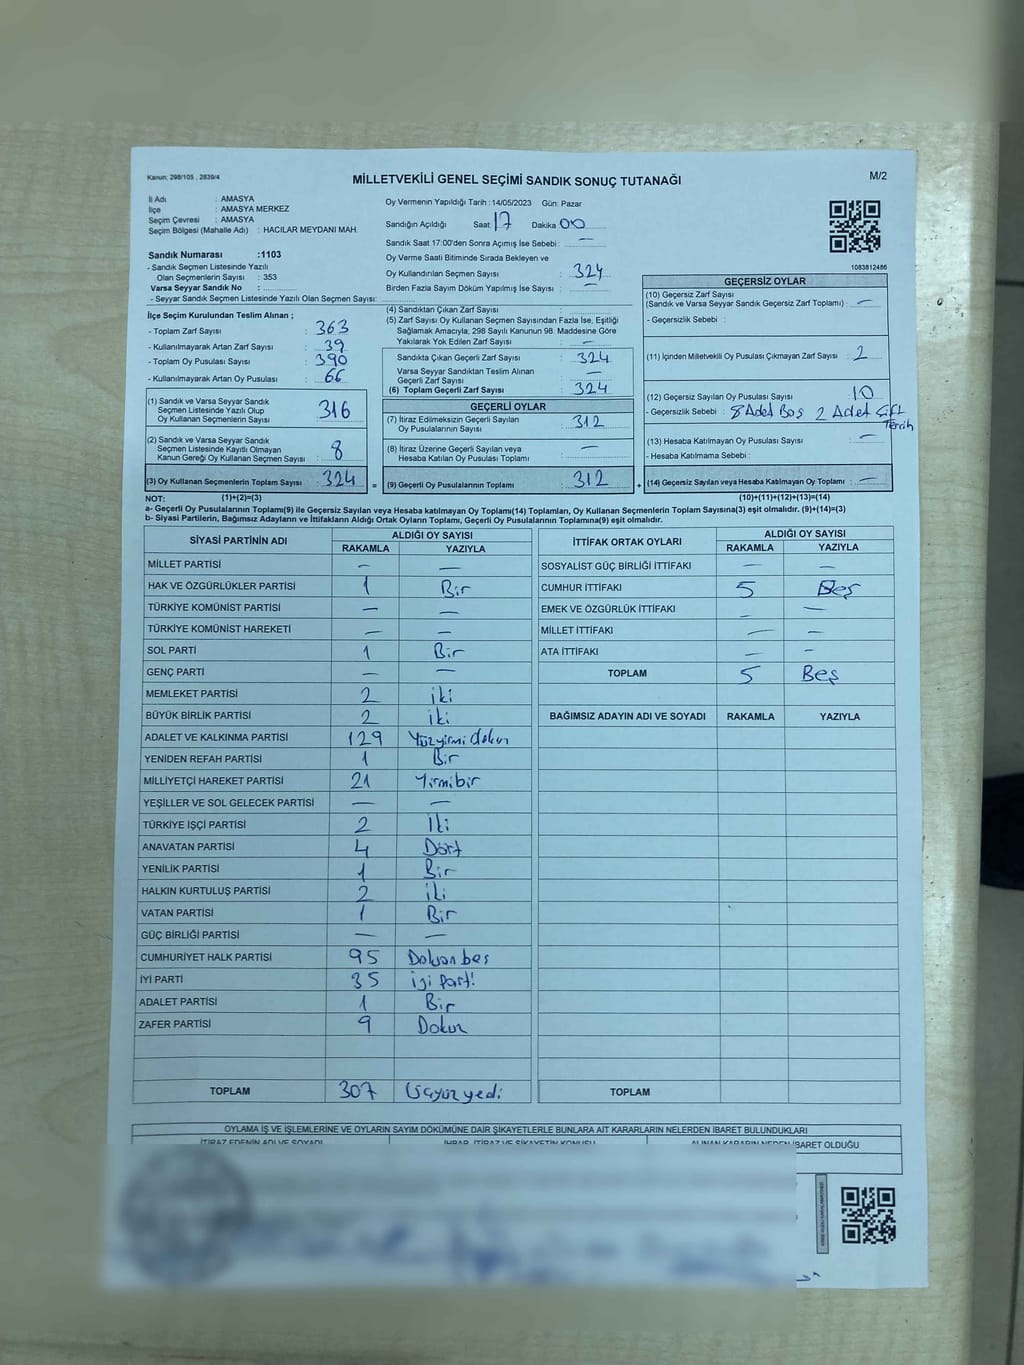 Kanun: 298/105 , 2839/4
MİLLETVEKİLİ GENEL SEÇİMİ SANDIK SONUÇ TUTANAĞI
M/2
İl Adı : AMASYA
İlçe : AMASYA MERKEZ
Seçim Çevresi : AMASYA
Seçim Bölgesi (Mahalle Adı) : HACILAR MEYDANI MAH.
Sandık Numarası :1103
- Sandık Seçmen Listesinde Yazılı
Olan Seçmenlerin Sayısı : 353
Varsa Seyyar Sandık No :
- Seyyar Sandık Seçmen Listesinde Yazılı Olan Seçmen Sayısı:
Oy Vermenin Yapıldığı Tarih :14/05/2023 Gün: Pazar
Sandığın Açıldığı Saat: 17 Dakika 00
Sandık Saat 17:00'den Sonra Açımış İse Sebebi : —
Oy Verme Saati Bitiminde Sırada Bekleyen ve
Oy Kullandırılan Seçmen Sayısı : 324
Birden Fazla Sayım Döküm Yapılmış İse Sayısı : —
1083812486
İlçe Seçim Kurulundan Teslim Alınan ;
- Toplam Zarf Sayısı : 363
- Kullanılmayarak Artan Zarf Sayısı : 39
- Toplam Oy Pusulası Sayısı : 390
- Kullanılmayarak Artan Oy Pusulası : 66
(1) Sandık ve Varsa Seyyar Sandık
Seçmen Listesinde Yazılı Olup
Oy Kullanan Seçmenlerin Sayısı : 316
(2) Sandık ve Varsa Seyyar Sandık
Seçmen Listesinde Kayıtlı Olmayan
Kanun Gereği Oy Kullanan Seçmen Sayısı : 8
(3) Oy Kullanan Seçmenlerin Toplam Sayısı : 324 =
(4) Sandıktan Çıkan Zarf Sayısı :
(5) Zarf Sayısı Oy Kullanan Seçmen Sayısından Fazla İse, Eşitliği
Sağlamak Amacıyla; 298 Sayılı Kanunun 98. Maddesine Göre
Yakılarak Yok Edilen Zarf Sayısı : —
Sandıkta Çıkan Geçerli Zarf Sayısı : 324
Varsa Seyyar Sandıktan Teslim Alınan
Geçerli Zarf Sayısı : —
(6) Toplam Geçerli Zarf Sayısı : 324
GEÇERLİ OYLAR
(7) İtiraz Edilmeksizin Geçerli Sayılan
Oy Pusulalarının Sayısı : 312
(8) İtiraz Üzerine Geçerli Sayılan veya
Hesaba Katılan Oy Pusulası Toplamı : —
(9) Geçerli Oy Pusulalarının Toplamı : 312 +
GEÇERSİZ OYLAR
(10) Geçersiz Zarf Sayısı
(Sandık ve Varsa Seyyar Sandık Geçersiz Zarf Toplamı) : —
- Geçersizlik Sebebi :
(11) İçinden Milletvekili Oy Pusulası Çıkmayan Zarf Sayısı : 2
(12) Geçersiz Sayılan Oy Pusulası Sayısı : 10
- Geçersizlik Sebebi : 8 Adet Boş 2 Adet Çift
Tercih
(13) Hesaba Katılmayan Oy Pusulası Sayısı : —
- Hesaba Katılmama Sebebi :
(14) Geçersiz Sayılan veya Hesaba Katılmayan Oy Toplamı : —
NOT: (1)+(2)=(3) (10)+(11)+(12)+(13)=(14)
a- Geçerli Oy Pusulalarının Toplamı(9) ile Geçersiz Sayılan veya Hesaba katılmayan Oy Toplamı(14) Toplamları, Oy Kullanan Seçmenlerin Toplam Sayısına(3) eşit olmalıdır. (9)+(14)=(3)
b- Siyasi Partilerin, Bağımsız Adayların ve İttifakların Aldığı Ortak Oyların Toplamı, Geçerli Oy Pusulalarının Toplamına(9) eşit olmalıdır.
SİYASİ PARTİNİN ADI ALDIĞI OY SAYISI
RAKAMLA YAZIYLA
MİLLET PARTİSİ — —
HAK VE ÖZGÜRLÜKLER PARTİSİ 1 Bir
TÜRKİYE KOMÜNİST PARTİSİ — —
TÜRKİYE KOMÜNİST HAREKETİ — —
SOL PARTİ 1 Bir
GENÇ PARTİ — —
MEMLEKET PARTİSİ 2 iki
BÜYÜK BİRLİK PARTİSİ 2 iki
ADALET VE KALKINMA PARTİSİ 129 Yüzyirmi dokuz
YENİDEN REFAH PARTİSİ 1 Bir
MİLLİYETÇİ HAREKET PARTİSİ 21 Yirmibir
YEŞİLLER VE SOL GELECEK PARTİSİ — —
TÜRKİYE İŞÇİ PARTİSİ 2 İki
ANAVATAN PARTİSİ 4 Dört
YENİLİK PARTİSİ 1 Bir
HALKIN KURTULUŞ PARTİSİ 2 iki
VATAN PARTİSİ 1 Bir
GÜÇ BİRLİĞİ PARTİSİ — —
CUMHURİYET HALK PARTİSİ 95 Doksan beş
İYİ PARTİ 35 iyi Parti
ADALET PARTİSİ 1 Bir
ZAFER PARTİSİ 9 Dokuz
TOPLAM 307 Üçyüz yedi
İTTİFAK ORTAK OYLARI ALDIĞI OY SAYISI
RAKAMLA YAZIYLA
SOSYALİST GÜÇ BİRLİĞİ İTTİFAKI — —
CUMHUR İTTİFAKI 5 Beş
EMEK VE ÖZGÜRLÜK İTTİFAKI — —
MİLLET İTTİFAKI — —
ATA İTTİFAKI — —
TOPLAM 5 Beş
BAĞIMSIZ ADAYIN ADI VE SOYADI RAKAMLA YAZIYLA
TOPLAM
OYLAMA İŞ VE İŞLEMLERİNE VE OYLARIN SAYIM DÖKÜMÜNE DAİR ŞİKAYETLERLE BUNLARA AİT KARARLARIN NELERDEN İBARET BULUNDUKLARI
İTİRAZ EDENİN ADI VE SOYADI İHBAR, İTİRAZ VE ŞİKAYETİN KONUSU ALINAN KARARIN NEDEN İBARET OLDUĞU